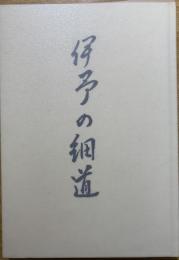 伊予の細道